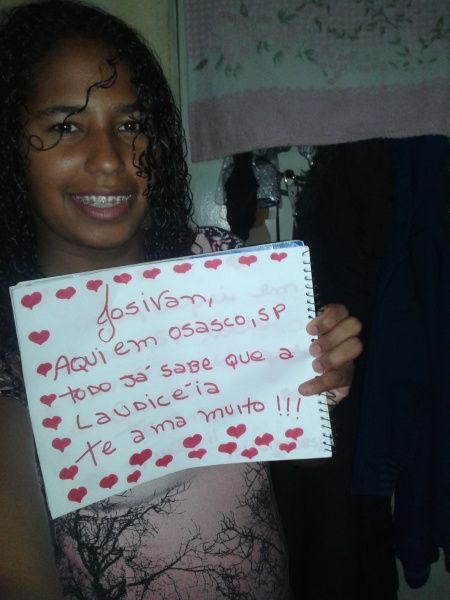 Josivan,
AQUI em OSASCO, SP
TODO JÁ SABE QUE A
LAUDICÉIA
Te ama muito !!!